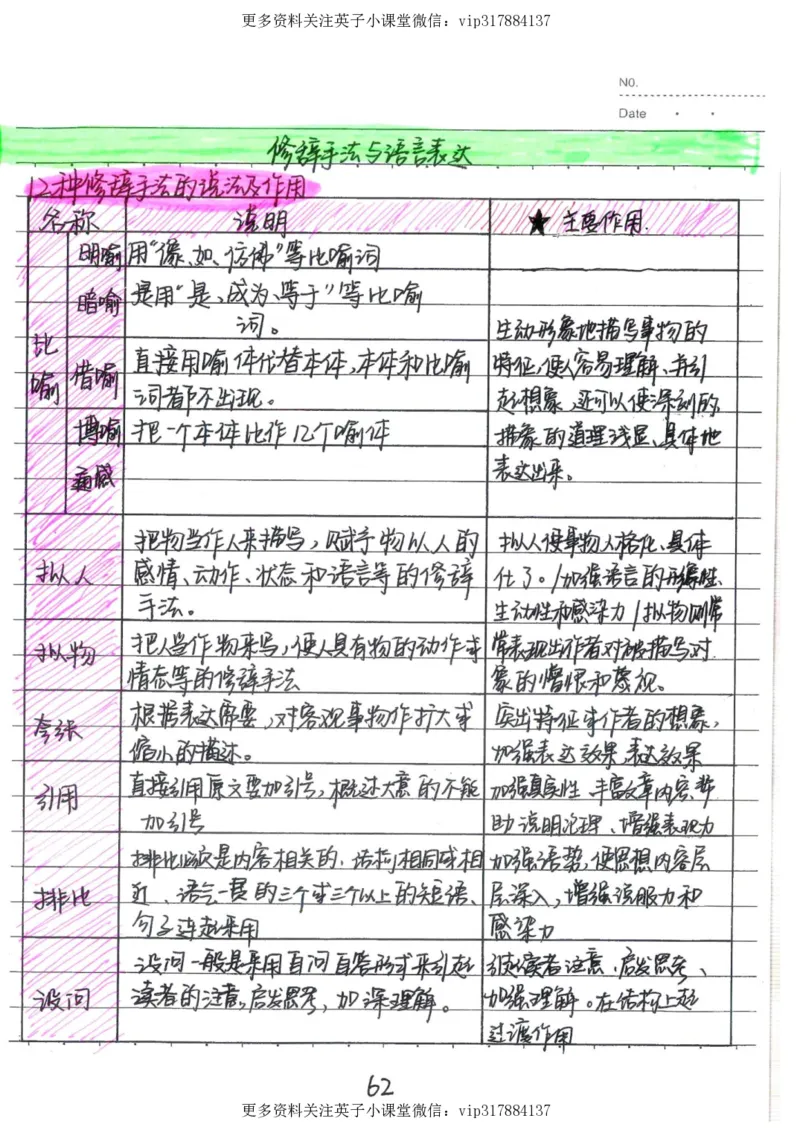 更多资料关注英子小课堂微信：vip317884137
NO.
Date
修辞手法与语言表达
12种修辞手法的说法及作用
名称 说明 ★主要作用.
比喻
明喻 用“像、如、仿佛”等比喻词
暗喻 是用“是、成为、等于”等比喻
词。
借喻 直接用喻体代替本体，本体和比喻
词都不出现。
博喻 把一个本体比作几个喻体
通感
生动形象地描写事物的
特征，使人容易理解、并引
起想象，还可以使深刻的
抽象的道理浅显、具体地
表达出来。
拟人 把物当作人来描写，赋予物以人的
感情、动作、状态和语言等的修辞
手法。
拟人使事物人格化、具体
化了。/加强语言的形象性、
生动性和感染力/拟物则常
拟物 把人当作物来写，使人具有物的动作或
情态等的修辞手法
常表现出作者对被描写对
象的憎恨和蔑视。
夸张 根据表达需要，对客观事物作扩大或
缩小的描述。
突出特征或作者的想象，
加强表达效果 表达效果
引用 直接引用原文要加引号，概述大意的不能
加引号
加强真实性 丰富文章内容、帮
助说明论理、增强表现力
排比 排比句是内容相关的、结构相同或相
近、语气一贯的三个或三个以上的短语、
句子连起来用
加强语势，使思想内容层
层深入，增强说服力和
感染力
设问 设问一般是采用自问自答形式来引起
读者的注意，启发思考，加深理解。
引起读者注意、启发思考、
加强理解。在结构上起
过渡作用
62
更多资料关注英子小课堂微信：vip317884137